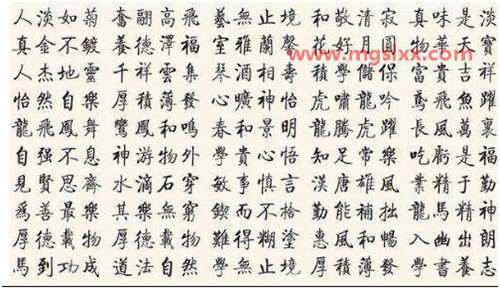 人淡如菊 奮翮高飛 藝無止境 和敬清寂 真味是淡
真金不鍍 養德澤福 室雅蘭馨 花好月圓 物華天寶
www.mgslxx.com
人杰地靈 千祥雲集 琴酒相壽 積學儲 富貴吉祥
怡然自樂 厚積薄發 心曠神怡 虎嘯龍吟 鳶飛魚躍
龍飛鳳舞 鸞鳳和鳴 春和景明 龍騰虎躍 長風萬裏
自强不息 神游物外 學貴心悟 知足常樂 吃虧是福
見賢思齊 水滴石穿 敏事慎言 漢唐雄風 業精于勤
爲善最樂 其樂無窮 鍥而不捨 勤能補拙 龍馬精神
厚德載物 厚德載物 難得糊塗 惠風和暢
馬到功成 道法自然 學無止境 厚積薄發 學書養志